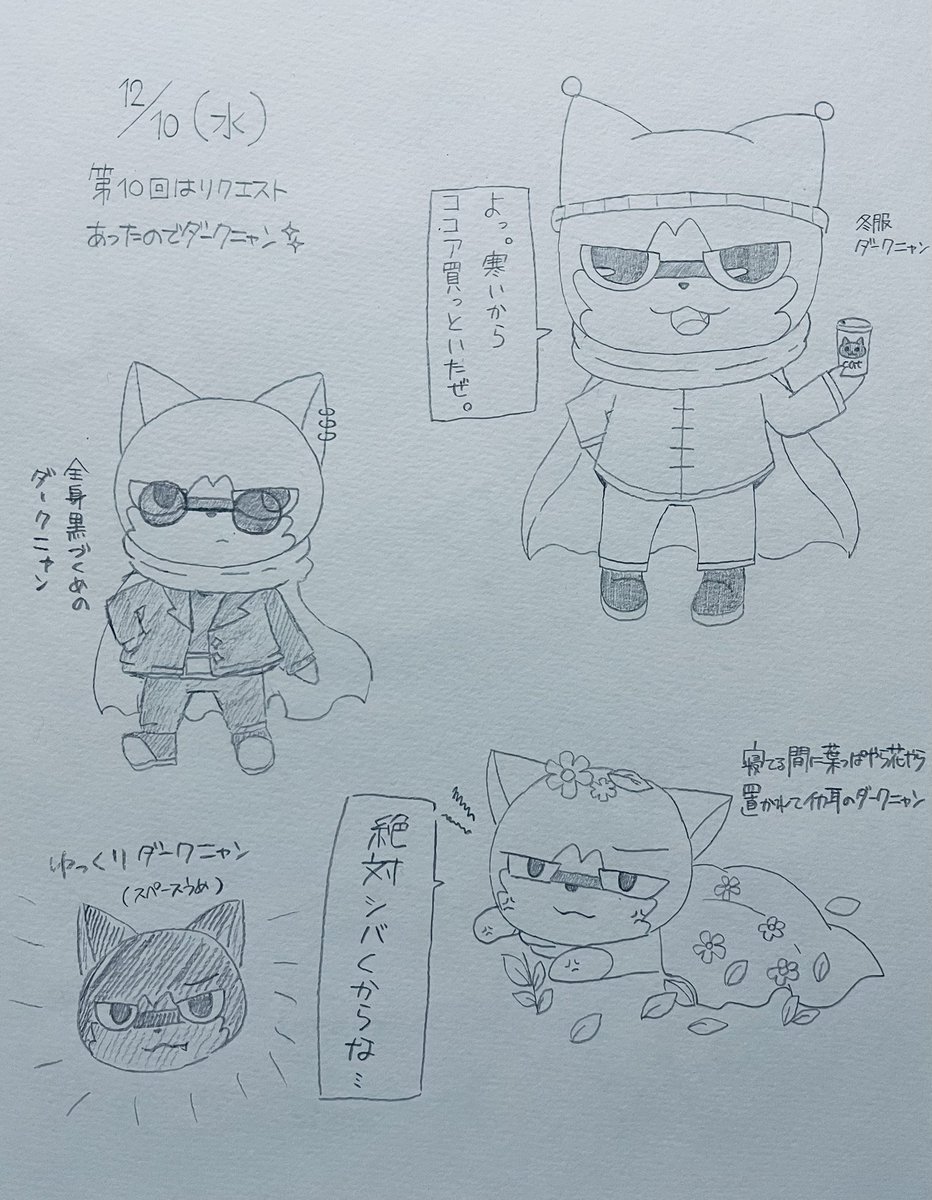 12/10(水)
第10回はリクエスト
あったのでダークニャン
よっ。寒いから
ココア買っといたぜ。
冬服
ダークニャン
cat
全身黒づくめの
ダークニャン
寝てる間に葉っぱやら花やら
置かれてイカ耳のダークニャン
絶対シバくからな…
ゆっくりダークニャン
(スペースうめ)